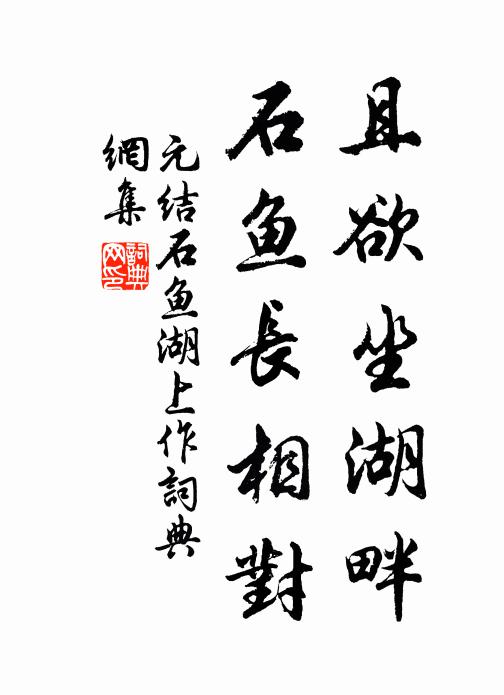 且欲坐湖畔
石鱼長相對
元结石鱼湖上作詞典
網集
詞典网印